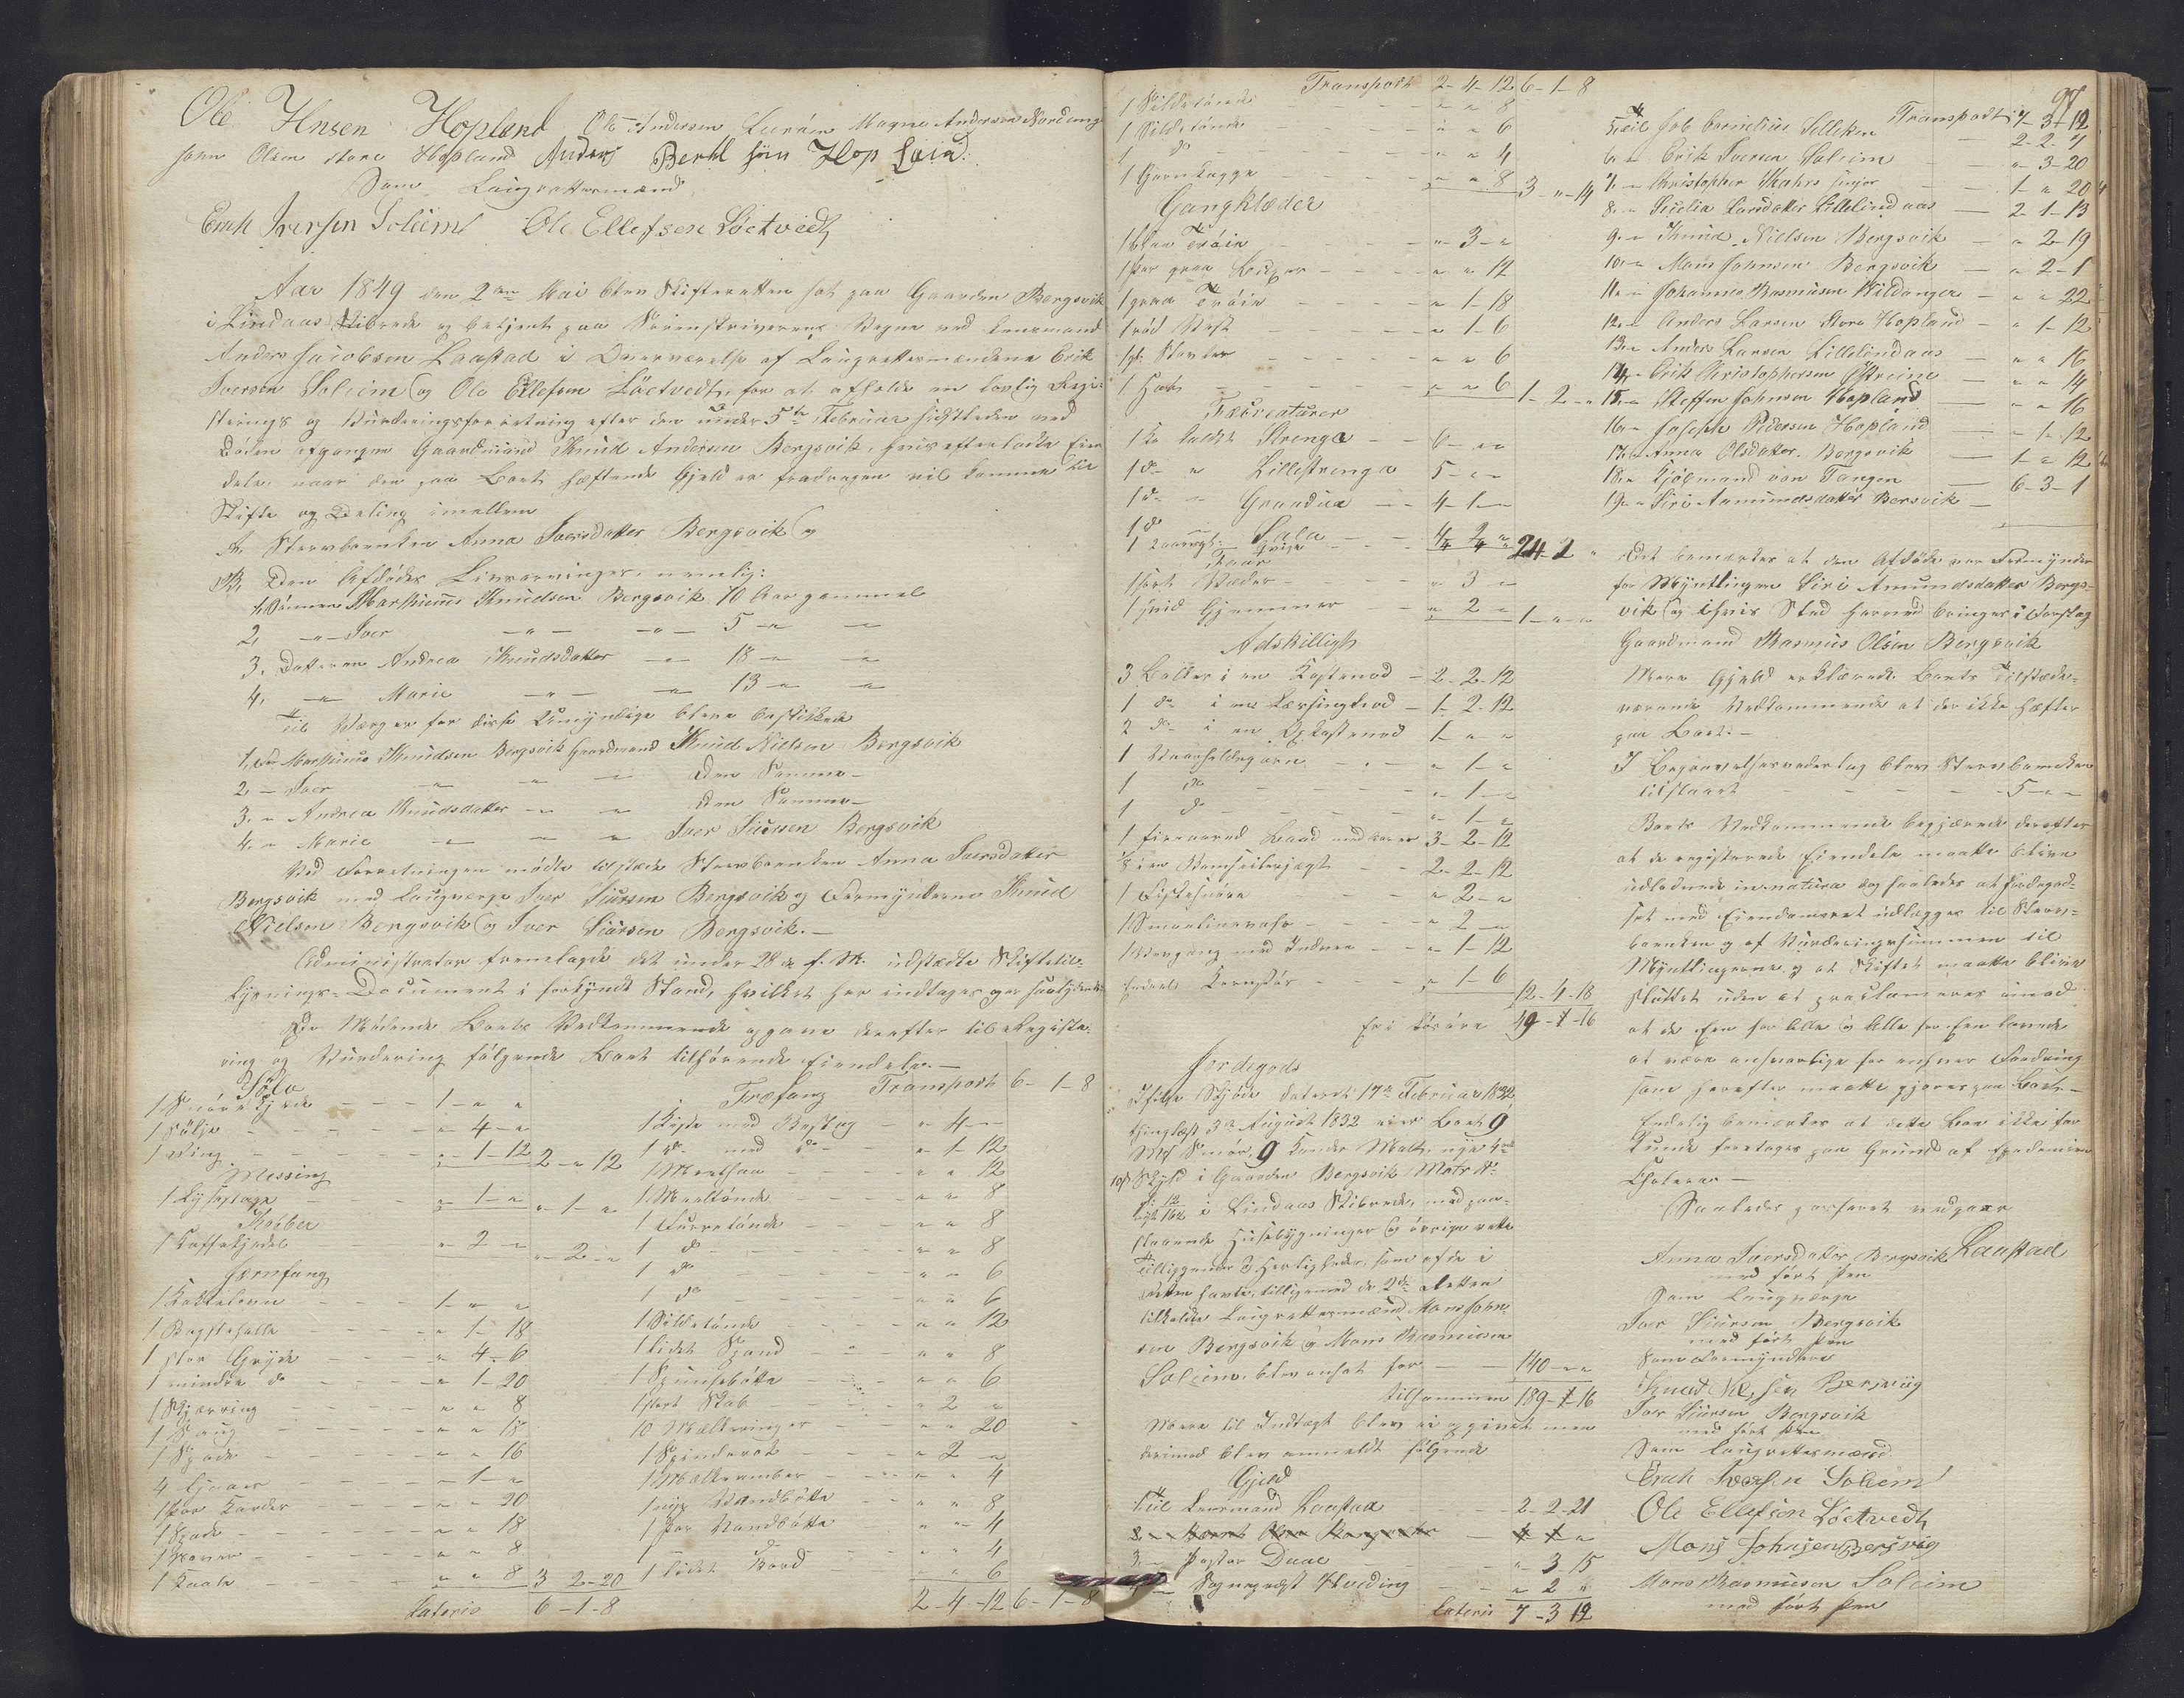 Ole Hnsen Hopland Ole Andersen Luraas Magne Andersen Nordanger
Olsen store Hopland Anders Berthl sön Hopland
Som Laugrettesmænd
Erick Iversen Soleim Ole Ellefsen Löetvedt
Aar 1849 den 2den Mai blev Skifteretten sat paa Gaarden Bergsvik
i Lindaas Skibrede og betjent paa Sorenskriverens Vegne ved Lensmand
Anders Jacobsen Laastad i Overværelse af Laugrettesmændene Erik
Iversen Soleim og Ole Ellefsen Löetvedt, for at afholde en lovlig Regi-
sterings og Vurderingsforretning efter den under 5te Februar sidstleden ved
Döden afgangne Gaardmand Knud Andersen Bergsvik, hvis efterladte Eien-
dele, naar den paa Boet hæftende Gjeld er fradragen vil komme til
Skifte og Deling imellem
A, Stervboenken Anna Iversdatter Bergsvik og
B, Den Afdödes Livsarvinger, nemlig:
1, Sönnen Marthinus Knudsen Bergsvik 10 Aar gammel
2, -"- Iver -"- -"- 5 -"- -"-
3, Datteren Andrea Knudsdatter -"- 18 -"- -"-
4, -"- Marie -"- -"- 13 -"- -"-
Til Værger for disse Umyndige bleve beskikkede
1, For Marthinus Knudsen Bergsvik Gaardmand Knud Nielsen Bergsvik
2, - Iver -"- -"- -"- Den Samme
3, " Andrea Knudsdatter -"- -"- Den Samme
4, " Marie -"- -"- -"- Iver Siursen Bergsvik
Ved Forretningen mödte tilstæde Stervboenken Anna Iversdatter
Bergsvik med Laugværge Iver Siursen Bergsvik og Formynderne Knud
Nielsen Bergsvik og Iver Siursen Bergsvik. -
Administrator fremlagde det under 28de f. M. udstædte Skiftetil-
lysnings-Document i forkyndt Stand, hvilket her indtages
De Mödende Boets Vedkommende opgave derefter til Registe-
ring og Vurdering fölgende Boet tilhörende Eiendele. -
Sölv
1 - " "
1 Sölje " 4 - "
1 Ring " 1 - 12 2 - " 12
Messing
1 Lysestage " 1 - " " 1 - "
Kobber
1 Kaffekjedel " 2 - " " 2 - "
Jernfang
1 Kakkelovn 1 - " "
1 Bagstehelle " 1 - 18
1 stor Gryde " 4 - 6
1 mindre do " 1 - 20
1 Skjærring " " 8
1 Saug " " 18
1 Spade " " 16
4 Ljaaer " 1 - "
1 Par Karder " " 20
1 Spade " " 18
1 Naver " " 8
1 " " 8 3 2 - 20
Lateris 6 - 1 - 8
Træfang Transport 6 - 1 - 8
1 Kiste med Beslag " 4 - "
1 do med do " 1 - 12
1 " " 12
1 Meeltönde " " 8
1 " " 8
1 do " " 8
1 do " " 6
1 do " " 6
1 Sildetönde " " 12
1 lidet Spand " " 8
1 " " 6
1 stort Skab " 2 "
10 Melkeringer " " 20
1 Spinderok " 2 "
1 " " 4
1 nye Vandbötte " " 8
1 Par Vandbötte " " 4
1 do " " 4
1 lidet Bord " " 6
2 - 4 - 12 6 - 1 - 8
Transport 2 - 4 - 12 6 - 1 - 8
1 Sildetönde " " 8
1 Sildetönde " " 6
1 do " " 4
1 Garnkagge " " 8 3 - " - 14
Gangklæder
1 blaa Tröie " 3 - "
1 Par graa Buxer " " 12
1 graa Tröie " 1 - 18
1 röd Vest " 1 - 6
1 gl. Stövler " " 6
1 Hat " " 6 1 - 2 - "
Creaturer
1 Ko kaldet Strenga 6 - " "
1 do " Lillestrenga 5 - " "
1 do " Graadua 4 - 1 - "
1 do Sala 4 4 "
1 2aargl: Qvige 4 4 " 24 - 2 "
Faar
1 sort Væder " 3 - "
1 hvid Gjemmer " 2 - " 1 - " - "
Adskilligt
3 Bolker i en Kastenod 2 - 2 - 12
1 do i en 1 - 2 - 12
2 do i en Opkastenod 1 - " "
1 Vaarsildegarn " 1 - "
1 do " 1 - "
1 do " 1 - "
1 fireaaret Baad med Aarer 3 - 2 - 12
1/8 i en 2 - 2 - 12
1 Fiskesnöre " 2 - "
1 " 2 - "
1 Vævgang med Indreie " 1 - 12
Endeel Kornstör " 1 - 6
12 - 4 - 18
Er i Lösöre 49 - 1 - 16
Jordegods
Ifölge Skjöde dateret 17de Februar 1832
thinglæst 3de August 1832 eier Boet 9
Mrk Smör, 9 Kander Malt, nye 4 ort
10 s Skyld i Gaarden Bergsvik, Matr. No
i Lindaas Skibrede, med paa-
staaende Huusebygninger og övrige rette
Tilliggender & Herligheder, som efter i
Retten havte, tilligemed de 2de af Retten
tilkaldte Laugrettesmænd Mons John-
sen Bergsvik og Mons Rasmusen
Soleim, blev ansat for 140 - " "
tilsammen 189 - 1 - 16
Mere til Indtægt blev ei opgivet men
derimod blev anmeldt fölgende
Gjeld
1, Til Lensmand Laastad 2 - 2 - 21
3, - Pastor Daae " 3 15
- Sogneprest Hveding " 2 "
Lateris 7 - 3 12
97
Transport 7 - 3 - 12
5, Til Job Cornelius Silleken 2 - 2 - 7
6, " Erik Iversen Soleim " 3 - 20
7, " Christopher Kahrs junior 1 - " 20
8, " Siselia Larsdatter Lillelindaas 2 - 1 - 13
9, " Knud Nielsen Bergsvik " 2 - 19
10, " Mons Johnsen Bergsvik " 2 - 1
11, " Johannes Rasmusen Kildanger " " 22
12, " Anders Larsen Store Hopland " 1 - 12
13, " Anders Larsen Lillelindaas " " 16
14, " Erik Christophersen Östreim " " 14
15, " Steffen Johnsen Hopland " " 16
16, " Joseph Pedersen Hopland " 1 - 12
17, " Anna Olsdatter Bergsvik 1 - " 12
18, " Kjöbmand von Tangen 6 - 3 - 1
19, " Siri Amundsdatter Bersvik
Det bemærkes at den Afdöde var Formynder
for Myndtlingen Siri Amundsdatter Bergs-
vik og i hvis Sted herved bringes i Forslag
Gaardmand Rasmus Olsen Bergsvik
Mere Gjeld erklærede Boets Tilstæde-
værende Vedkommende at der ikke hæfter
paa Boet. -
I Begravelsesvederlag blev Stervboenken
tilstaaet 5 - " "
Boets Vedkommende begjærede derefter
at de registerede Eiendele maatte blive
udlodnede in natura dog saaledes at Jordegod-
set med Eiendommeret udlægges til Sterv-
boenken og af Vurderingssummen til
Myndtlingerne, og at Skiftet maatte blive
sluttet uden at proclameres imod
at de Een for Alle og Alle for Een lovede
at være ansvarlige for enhver Fordring
som herefter maatte gjöres paa Boet. -
Endelig bemærkes at dette Boe ikke för
kunde foretages paa Grund af Epidemien
Cholera. -
Saaledes passeret vidner
Laastad
Anna Iversdatter Bergsvik
med fört Pen
Som Laugværge
Iver Siursen Bergsvik
med fört Pen
Som Formyndere
Knud Nilsen Bersvig
Iver Siursen Bergsvik
med fört Pen
Som Laugrettesmænd
Erick Iversen Soleim
Ole Ellefsen Löetvedt
Mons Johnsen Bersvig
Mons Rasmusen Soleim
med fört Pen